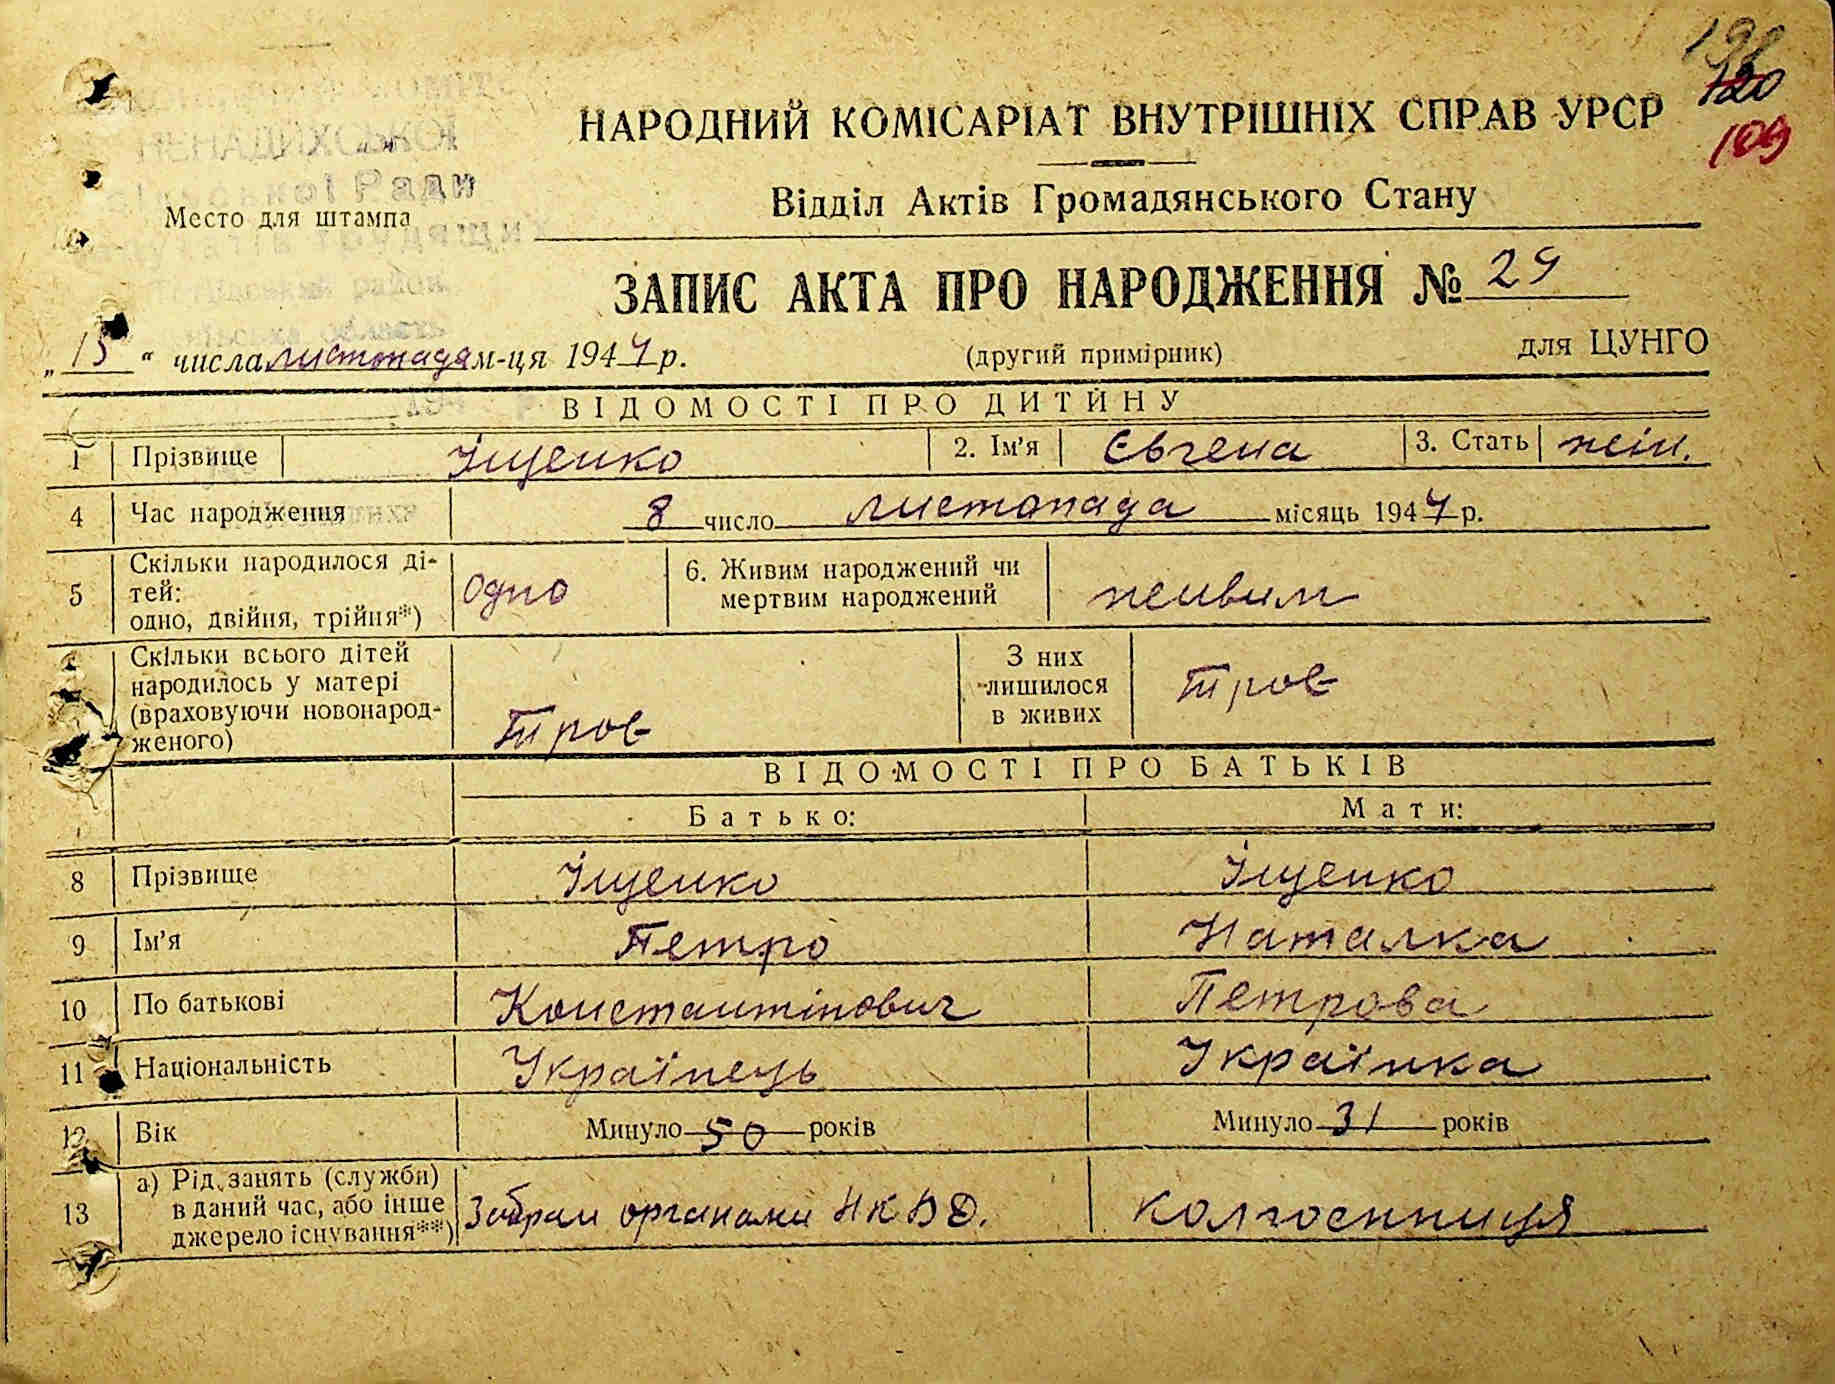 120
109
НЕНАДИХСЬКОЇ
Ради
НАРОДНИЙ КОМІСАРІАТ ВНУТРІШНІХ СПРАВ УРСР
Відділ Актів Громадянського Стану
Место для штампа
ЗАПИС АКТА ПРО НАРОДЖЕННЯ № 29
„15“ числа листопада м-ця 1944 р. (другий примірник) для ЦУНГО
ВІДОМОСТІ ПРО ДИТИНУ
1 Прізвище Іщенко 2. Ім'я Євгена 3. Стать жін.
4 Час народження 8 число листопада місяць 1944 р.
5 Скільки народилося ді-
тей:
одно, двійня, трійня*) Одно 6. Живим народжений чи
мертвим народжений живим
Скільки всього дітей
народилось у матері
(враховуючи новонарод-
женого) Троє З них
лишилося
в живих Троє
ВІДОМОСТІ ПРО БАТЬКІВ
Батько: Мати:
8 Прізвище Іщенко Іщенко
9 Ім'я Петро Наталка
10 По батькові Константінович Петрова
11 Національність Українець Українка
12 Вік Минуло 50 років Минуло 31 років
13 а) Рід занять (служби)
в даний час, або інше
джерело існування**) Забран органами НКВД. колгоспниця